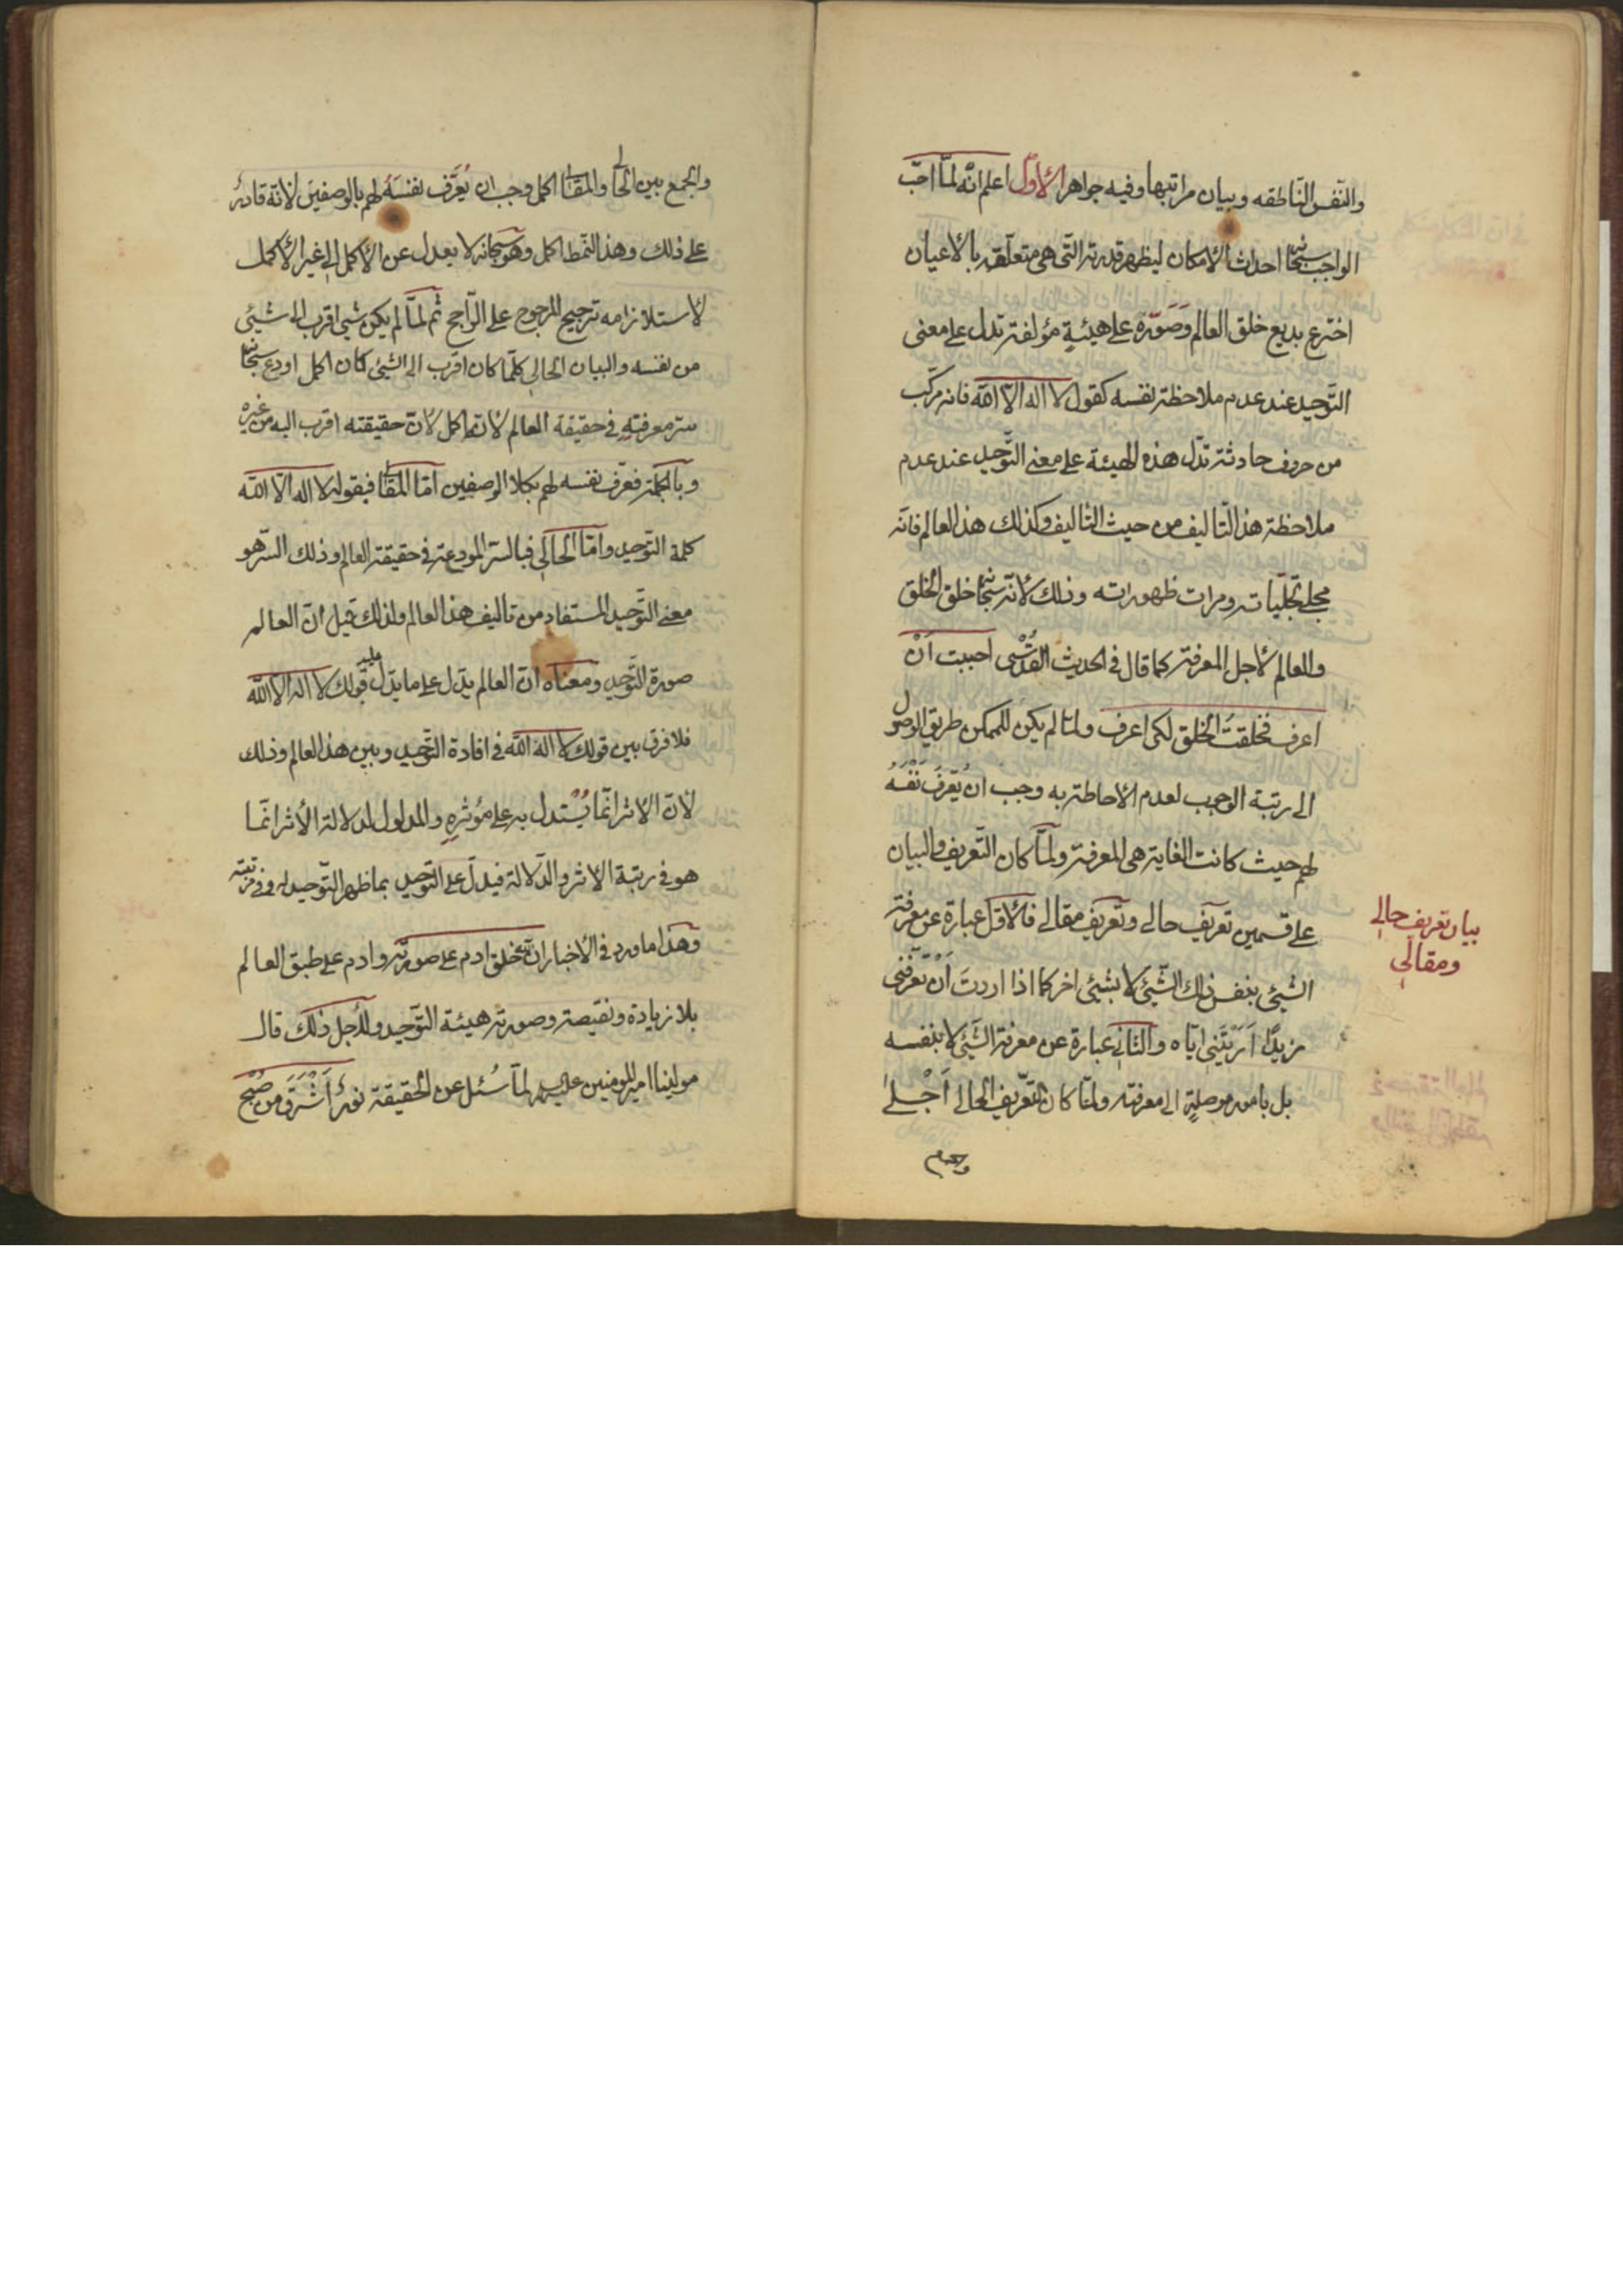 والنّفس النّاطقه وبيان مراتبها وفيه جواهر الأوّل اعلم انّه لمّا احبّ
الواجب سبحانه احداث الأمكان ليظهر قدرته الّتى هى متعلّقة بالأعيان
اخترع بديع خلق العالم وصَوّره على هيئةٍ مؤلفة تدل على معنى
التّوحيد عند عدم ملاحظة نفسه كقول لا اله الّا الله فانه مركّب
من حروف حادثة تدلّ هذه الهيئة على معنى التّوحيد عند عدم
ملاحظة هذا التّاليف من حيث التّاليف وكذلك هذا العالم فانّه
مجلى تجلّياته ومرات ظهوراته وذلك لأنّه سبحانه خلق الخلق
والعالم لأجل المعرفة كما قال فى الحديث القُدْسى احببت اَنْ
اعرف فخلقتُ الخلق لكى اعرف ولمّا لم يكن للممكن طريق الوصول
الى رتبة الوجوب لعدم الأحاطة به وجب ان يُعَرّفَ نَفْسَهُ
لهم حيث كانت الغاية هى المعرفة ولمّا كان التّعريف والبيان
على قسمين تعريف حالى وتعريف مقالى فالأوّل عبارة عن معرفة
الشّيئ بنفس ذلك الشّيئ لا بشيئ اخر كما اذا اردتَ اَنْ تعرّفنى
زيدًا اَرَيْتَنِى ايّاه والثانى عبارة عن معرفة الشّيئ لا بنفسه
بل بامور موصلةٍ الى معرفته ولمّا كان التّعريف الحالى اَجْلى
والجمع
بيان تعريف حالى
ومقالى
والجمع بين الحالى والمقالى اكمل وجب ان يُعرّف نفسَهُ لهم بالوصفين لانّه قادرٌ
على ذلك وهذا النّمط اكمل وهو سبحانه لا يعدل عن الأكمل الى غير الأكمل
لأستلزامه ترجيح المرجوح على الرّاجح ثم لمّا لم يكن شيئ اقرب الى شيئى
من نفسه والبيان الحالى كلّما كان اقرب الى الشيئى كان اكمل اودع سبحانه
سرّ معرفتهِ فى حقيقة العالم لأنّها اكمل لأنّ حقيقته اقرب اليه من غيره
وبالجملة فعرّف نفسه لهم بكلا الوصفين امّا المقالى فبقوله لا اله الّا الله
كلمة التّوحيد وامّا الحالى فبالسّر المودعة فى حقيقة العالم وذلك السّر هو
معنى التّوحيد المستفاد من تاليف هذا العالم ولذلك قيل انّ العالم
صورة التّوحيد ومعناه انّ العالم يدّل على ما يدّل عليه قولك لا اله الا الله
فلا فرق بين قولك لا اله الله فى افادة التّوحيد وبين هذا العالم وذلك
لأنّ الأثر انّما يُسْتدل به على مؤثرهِ والمدلول لدلالة الأثر انّما
هو فى رتبة الأثر والدّلالة فيدلّ على التّوحيد بما ظهر التّوحيد له وفى رتبته
وهذا ما ورد فى الأخبار انّ الله خلق ادم على صورته وادم على طبق العالم
بلا زيادة ونقيصة وصورته هيئة التّوحيد ولأجل ذلك قال
مولينا امير المومنين عليه السلام لمّا سُئل عن الحقيقة نورٌ اَشْرَقَ من صُبْحِ